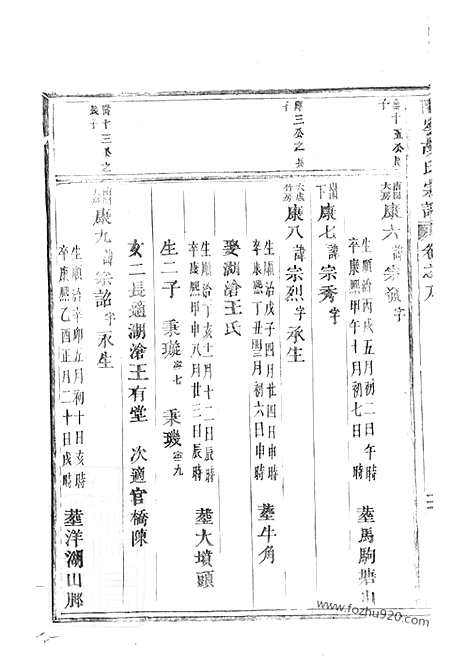 南陽大房 康六 諱宗 字
生順治丙戌五月初二日午時
卒康熙甲午十月初七日
葬馬駒塘山
康七 諱宗秀 字
康三公之長子
大房 康八 諱宗烈 字永生
生順治戊子四月廿四日申時
卒康熙丁丑閏三月初六日申時
葬牛角
娶湖滄王氏
生順治丁亥十一月十二日辰時
卒康熙甲申八月廿三日辰時
葬大墳頭
生二子 秉璇 七 秉璣 九
女二長適湖滄王有堂 次適官橋陳
十三公之長子
南陽大房 康九 諱宗韶 字永生
生順治辛卯五月初十日亥時
卒康熙乙酉正月二十日戌時
葬洋湖山腳
www.fozhu920.com